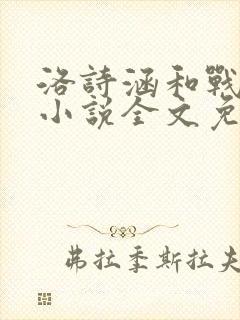 洛詩涵和戰
小說全文免
弗拉季斯拉夫